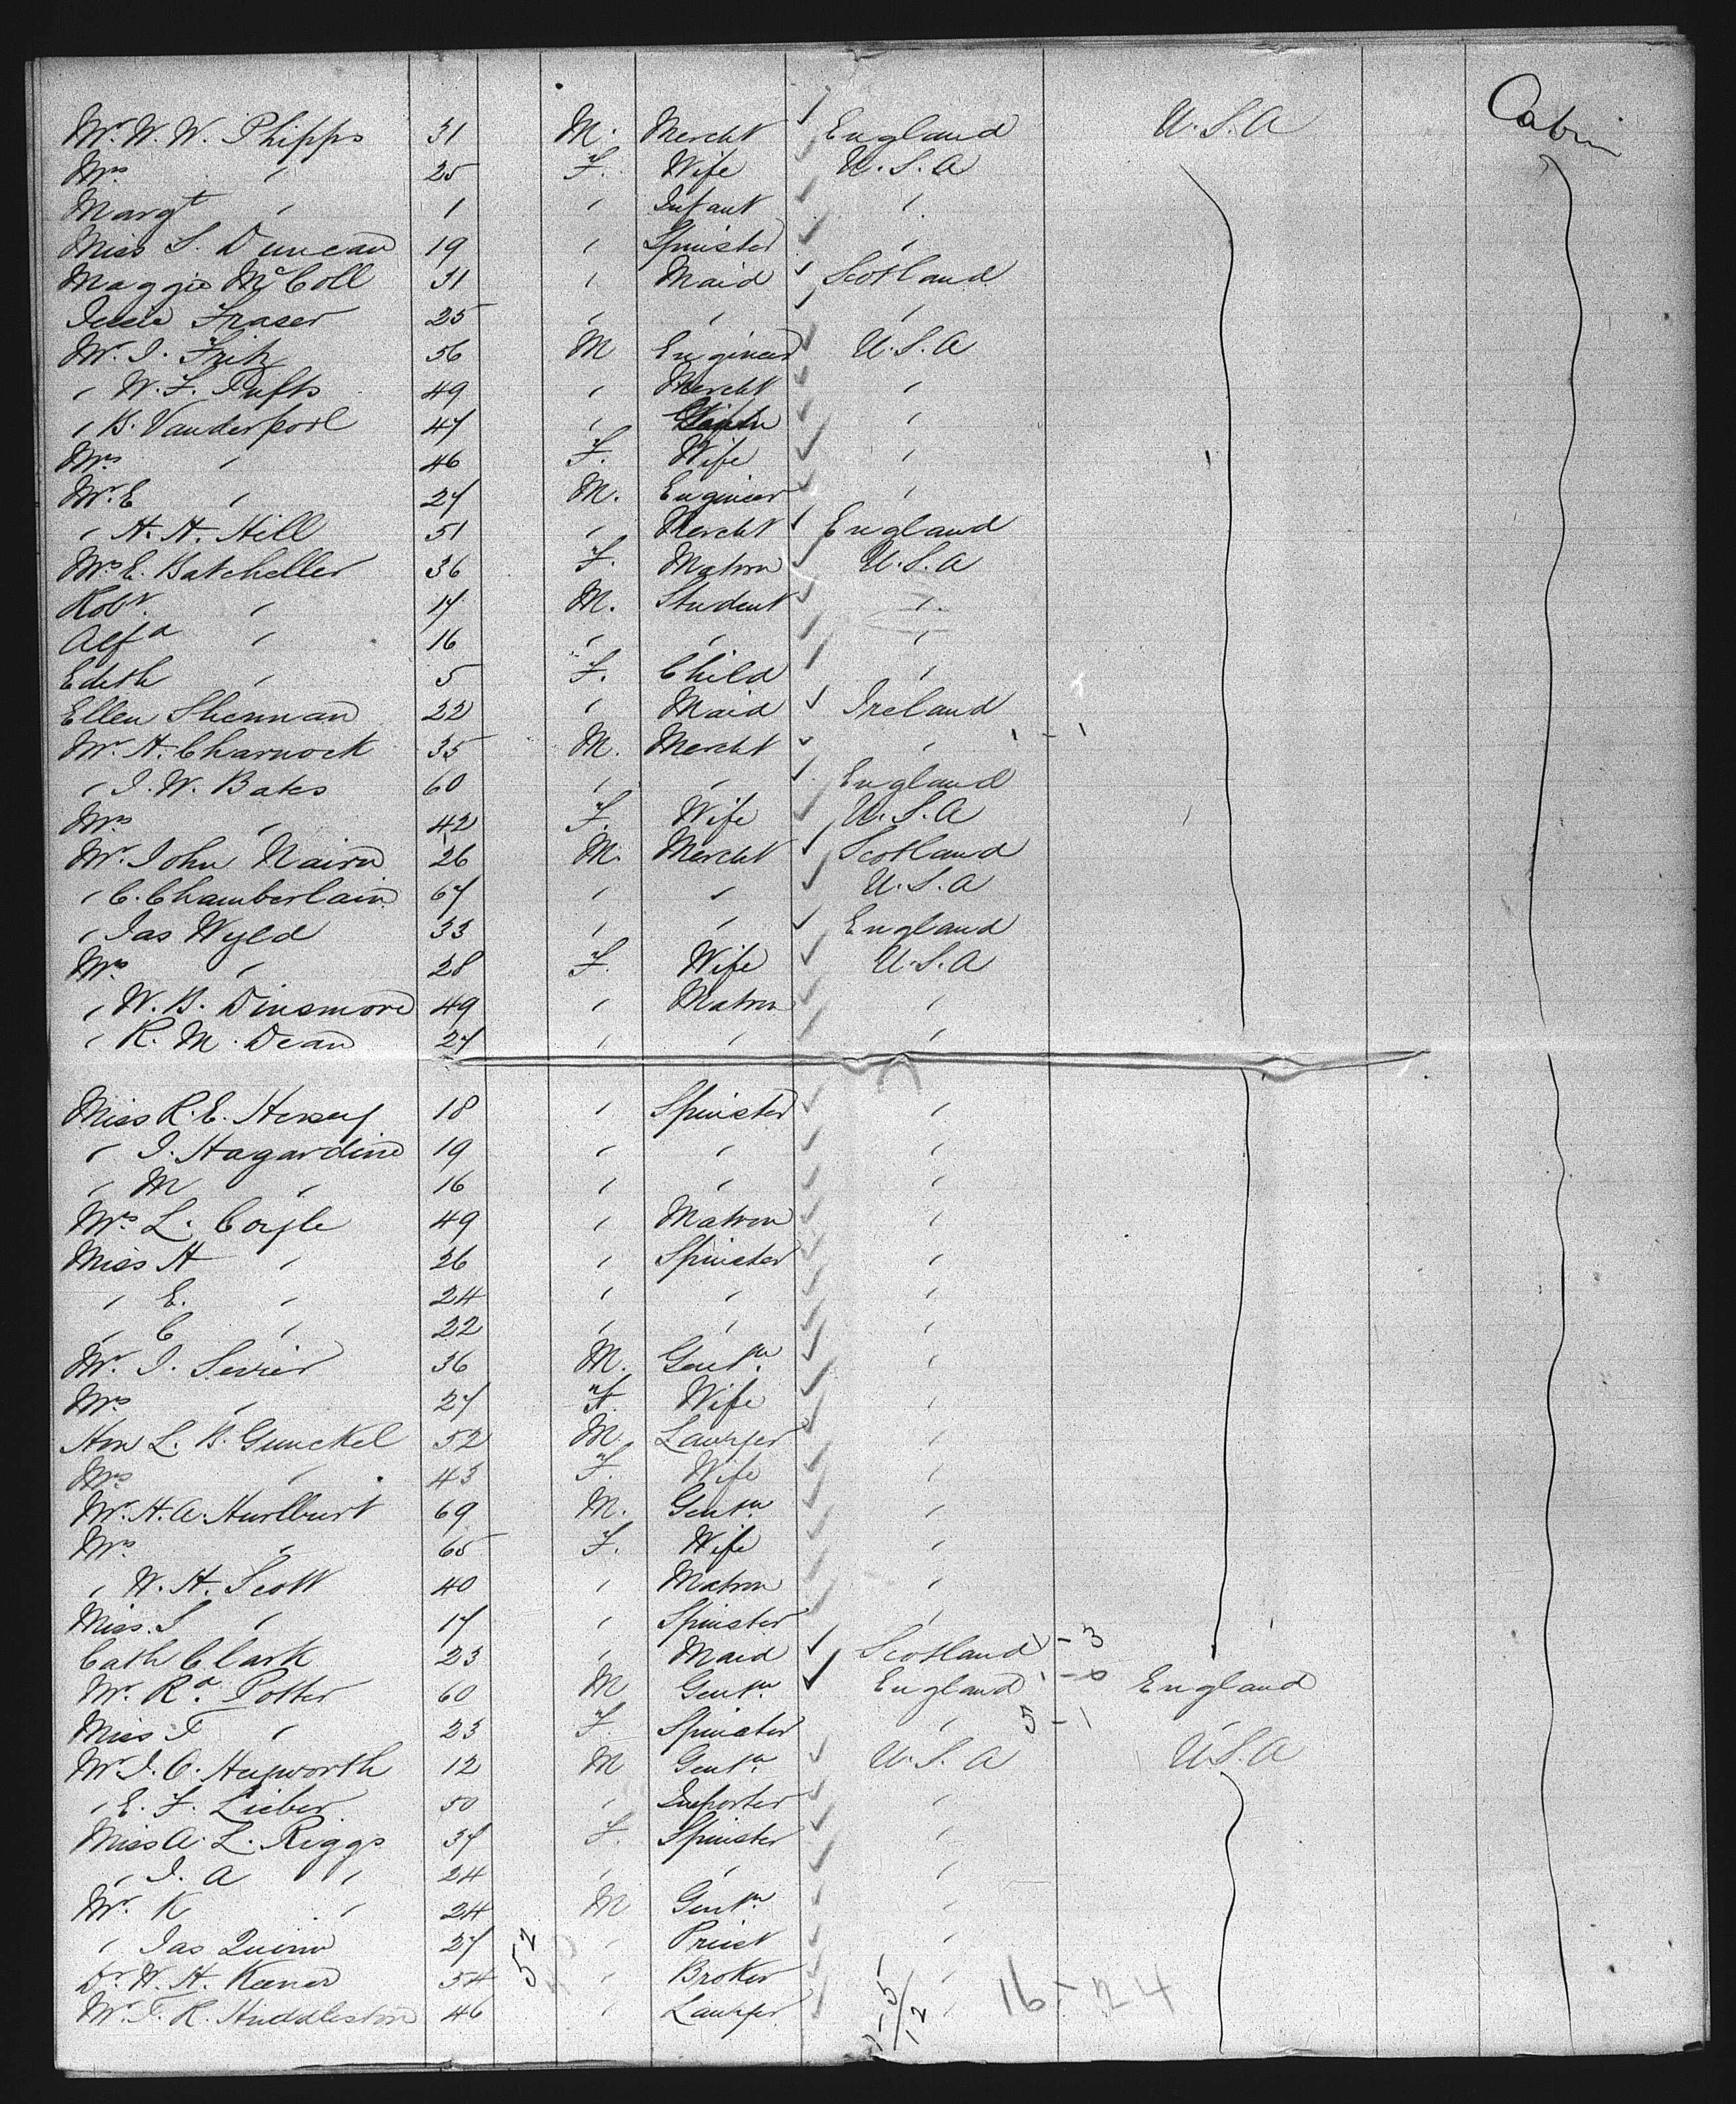 Mr. W. W. Phipps 31 M. Mercht England U.S.A Cabin
Mrs " 25 F. Wife U.S.A
Margt " 1 " Infant "
Miss S. Duncan 19 " Spinster "
Maggie McColl 31 " Maid Scotland
Jessie Fraser 25 " " "
Mr. J. Fritz 56 M Engineer U.S.A
" W. F. Tufts 49 " Mercht "
" B. Vanderpool 47 " "
Mrs " 46 F. Wife "
Mr. E " 27 M. Engineer "
" H. H. Hill 51 " Mercht England
Mrs E. Batcheller 36 F. Matron U.S.A
Robt. " 17 M. Student "
Alfd " 16 " " "
Edith " 5 F. Child "
Ellen Shennan 22 " Maid Ireland
Mr. H. Charnock 35 M. Mercht " 1 - 1
" J. W. Bates 60 " " England
Mrs " 42 F. Wife U.S.A
Mr. John Nairn 26 M. Mercht Scotland
" C. Chamberlain 67 " " U.S.A
" Jas Wyld 33 " " England
Mrs " 28 F. Wife U.S.A
" W. B. Dinsmore 49 " Matron "
" R. M. Dean 27 " " "
Miss R. E. Hersey 18 " Spinster "
" J. Hagardine 19 " " "
" M " 16 " " "
Mrs L. Coyle 49 " Matron "
Miss H " 26 " Spinster "
" E. " 24 " " "
" C " 22 " " "
Mr. J. Sevier 36 M. Gentn. "
Mrs " 27 F. Wife "
Hon L. B. Gunckel 52 M. Lawyer "
Mrs " 43 F. Wife "
Mr. H. A. Hurlburt 69 M. Gentn. "
Mrs " 65 F. Wife "
" W. H. Scott 40 " Matron "
Miss S " 17 " Spinster "
Cath Clark 23 " Maid Scotland 1 - 3
Mr. Rd. Potter 60 M Gentn. England 1 - 0 England
Miss T " 23 F. Spinster " 5 - 1 "
Mr J. C. Hepworth 12 M Gentn. U.S.A U.S.A
" E. F. Lieber 50 " Importer "
Miss A. L. Riggs 37 F. Spinster "
" J. A " 24 " " "
Mr. K " 24 M Gentn. "
" Jas Quinn 27 " Priest "
Dr. W. H. Keener 54 52 " Broker "
Mr. T. R. Huddleston 46 " Lawyer " 16 - 24